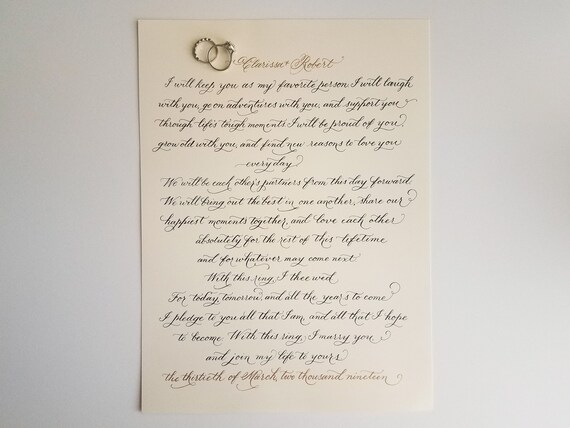 Clarissa & Robert
I will keep you as my favorite person. I will laugh
with you, go on adventures with you, and support you
through life's tough moments. I will be proud of you,
grow old with you, and find new reasons to love you
everyday.
We will be each other's partners from this day forward.
We will bring out the best in one another, share our
happiest moments together, and love each other
absolutely for the rest of this lifetime
and for whatever may come next.
With this ring, I thee wed.
For today, tomorrow, and all the years to come
I pledge to you all that I am, and all that I hope
to become. With this ring, I marry you
and join my life to yours.
the thirtieth of March, two thousand nineteen